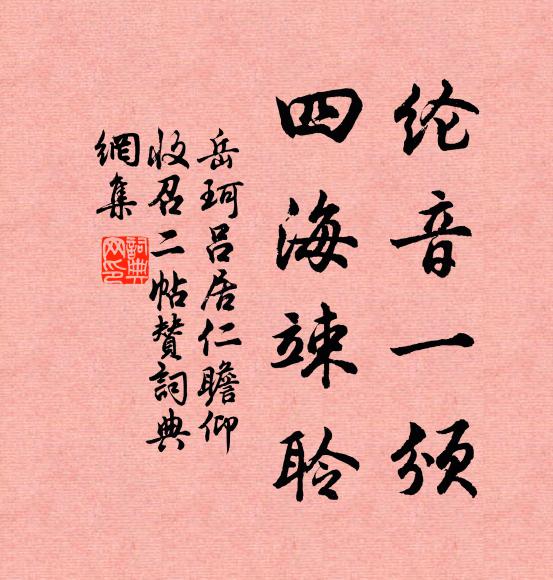 纶音一颁
四海竦聆
岳珂吕居仁瞻仰
收召二帖赞词典
網集
詞典
网印